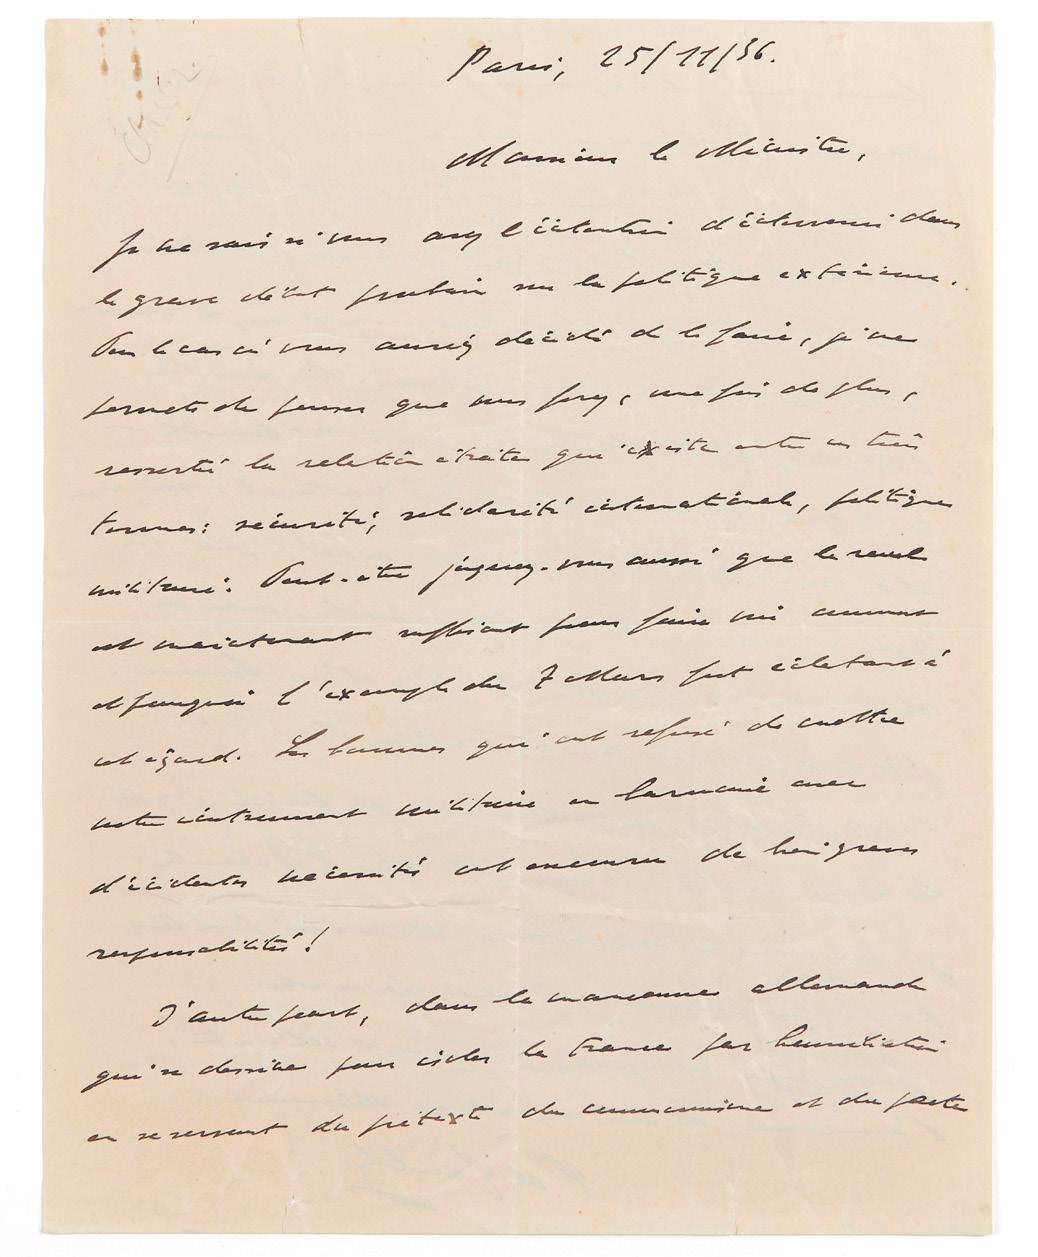 Paris, 25/11/36.
Monsieur le Ministre,
Je ne sais si vous avez l'intention d'intervenir dans
le grave débat prochain sur la politique extérieure.
Dans le cas où vous auriez décidé de le faire, je me
permets de penser que vous ferez, une fois de plus,
ressortir la relation étroite qui existe entre ces trois
termes: sécurité, solidarité internationale, politique
militaire. Peut-être jugerez-vous aussi que le recul
est maintenant suffisant pour faire voir comment
et pourquoi l'exemple du 7 Mars fut éclatant à
cet égard. Les hommes qui ont refusé de mettre
notre instrument militaire en harmonie avec
d'évidentes nécessités ont encouru de bien graves
responsabilités!
D'autre part, dans la manœuvre allemande
qui se dessine pour isoler la France par l'humiliation
en se servant du prétexte du communisme et du pacte